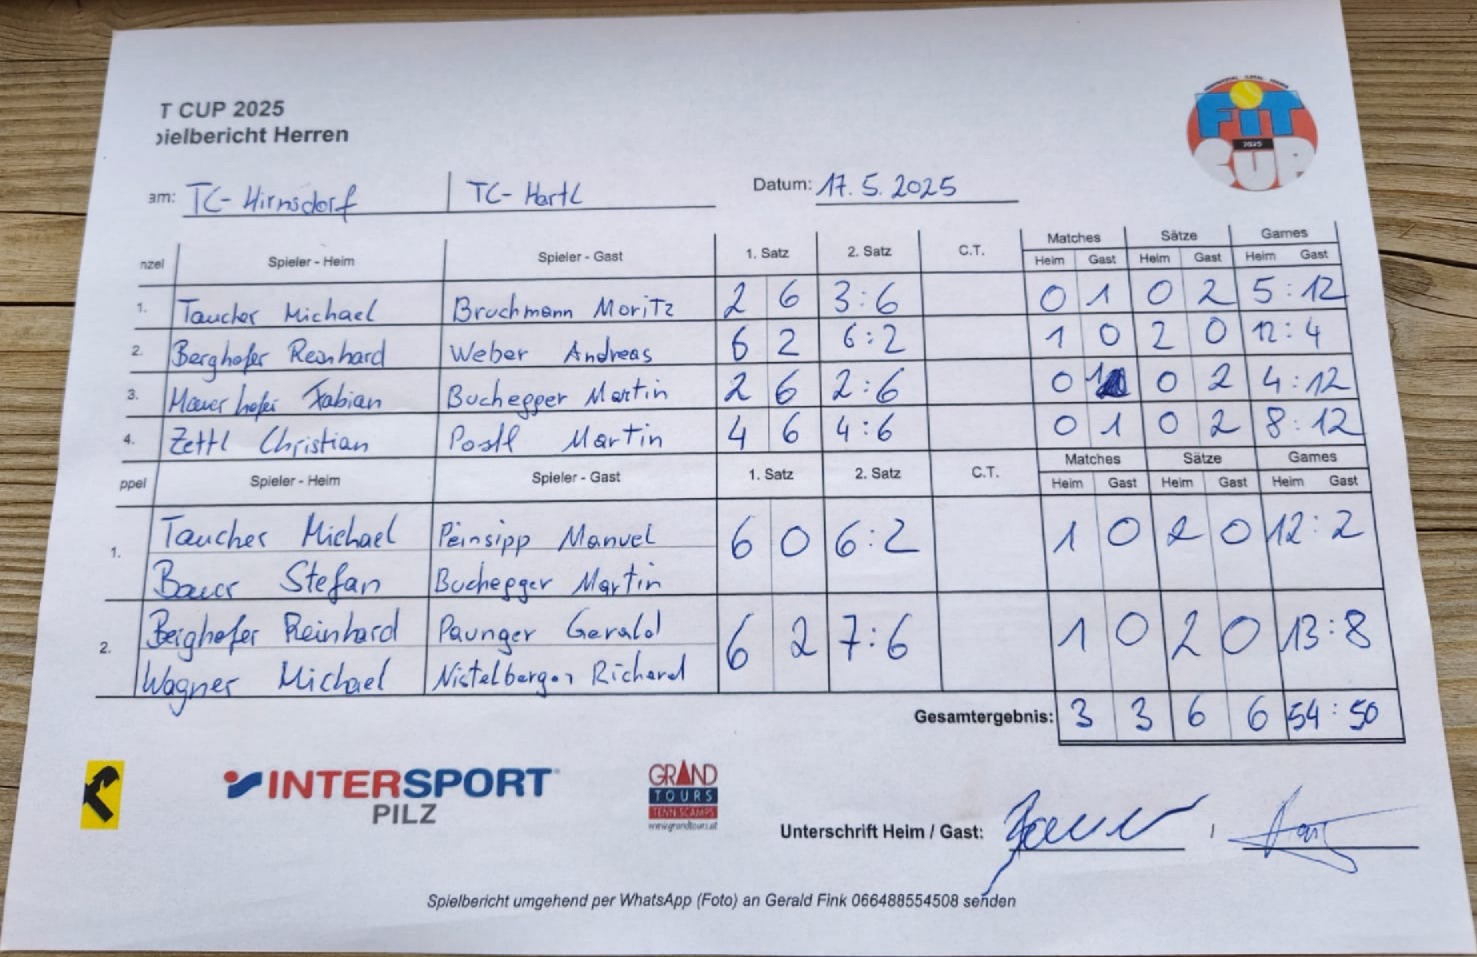 T CUP 2025
pielbericht Herren
FiT
2025
CUP
am: TC-Hirnsdorf | TC-Hartl Datum: 17.5.2025
Matches Sätze Games
nzel Spieler - Heim Spieler - Gast 1. Satz 2. Satz C.T. Heim Gast Heim Gast Heim Gast
1. Taucher Michael Bruchmann Moritz 2 6 3:6 0 1 0 2 5:12
2. Berghofer Reinhard Weber Andreas 6 2 6:2 1 0 2 0 12:4
3. Fabian Buchegger Martin 2 6 2:6 0 1 0 2 4:12
4. Zettl Christian Postl Martin 4 6 4:6 0 1 0 2 8:12
Matches Sätze Games
ppel Spieler - Heim Spieler - Gast 1. Satz 2. Satz C.T. Heim Gast Heim Gast Heim Gast
1. Taucher Michael Peinsipp Manuel 6 0 6:2 1 0 2 0 12:2
Bauer Stefan Buchegger Martin
2. Berghofer Reinhard Paunger Gerald 6 2 7:6 1 0 2 0 13:8
Wagner Michael Nistelberger Richard
Gesamtergebnis: 3 3 6 6 54:50
INTERSPORT
PILZ
GRAND
TOURS
TENNISCAMPS
www.grandtours.at
Unterschrift Heim / Gast: /
Spielbericht umgehend per WhatsApp (Foto) an Gerald Fink 066488554508 senden